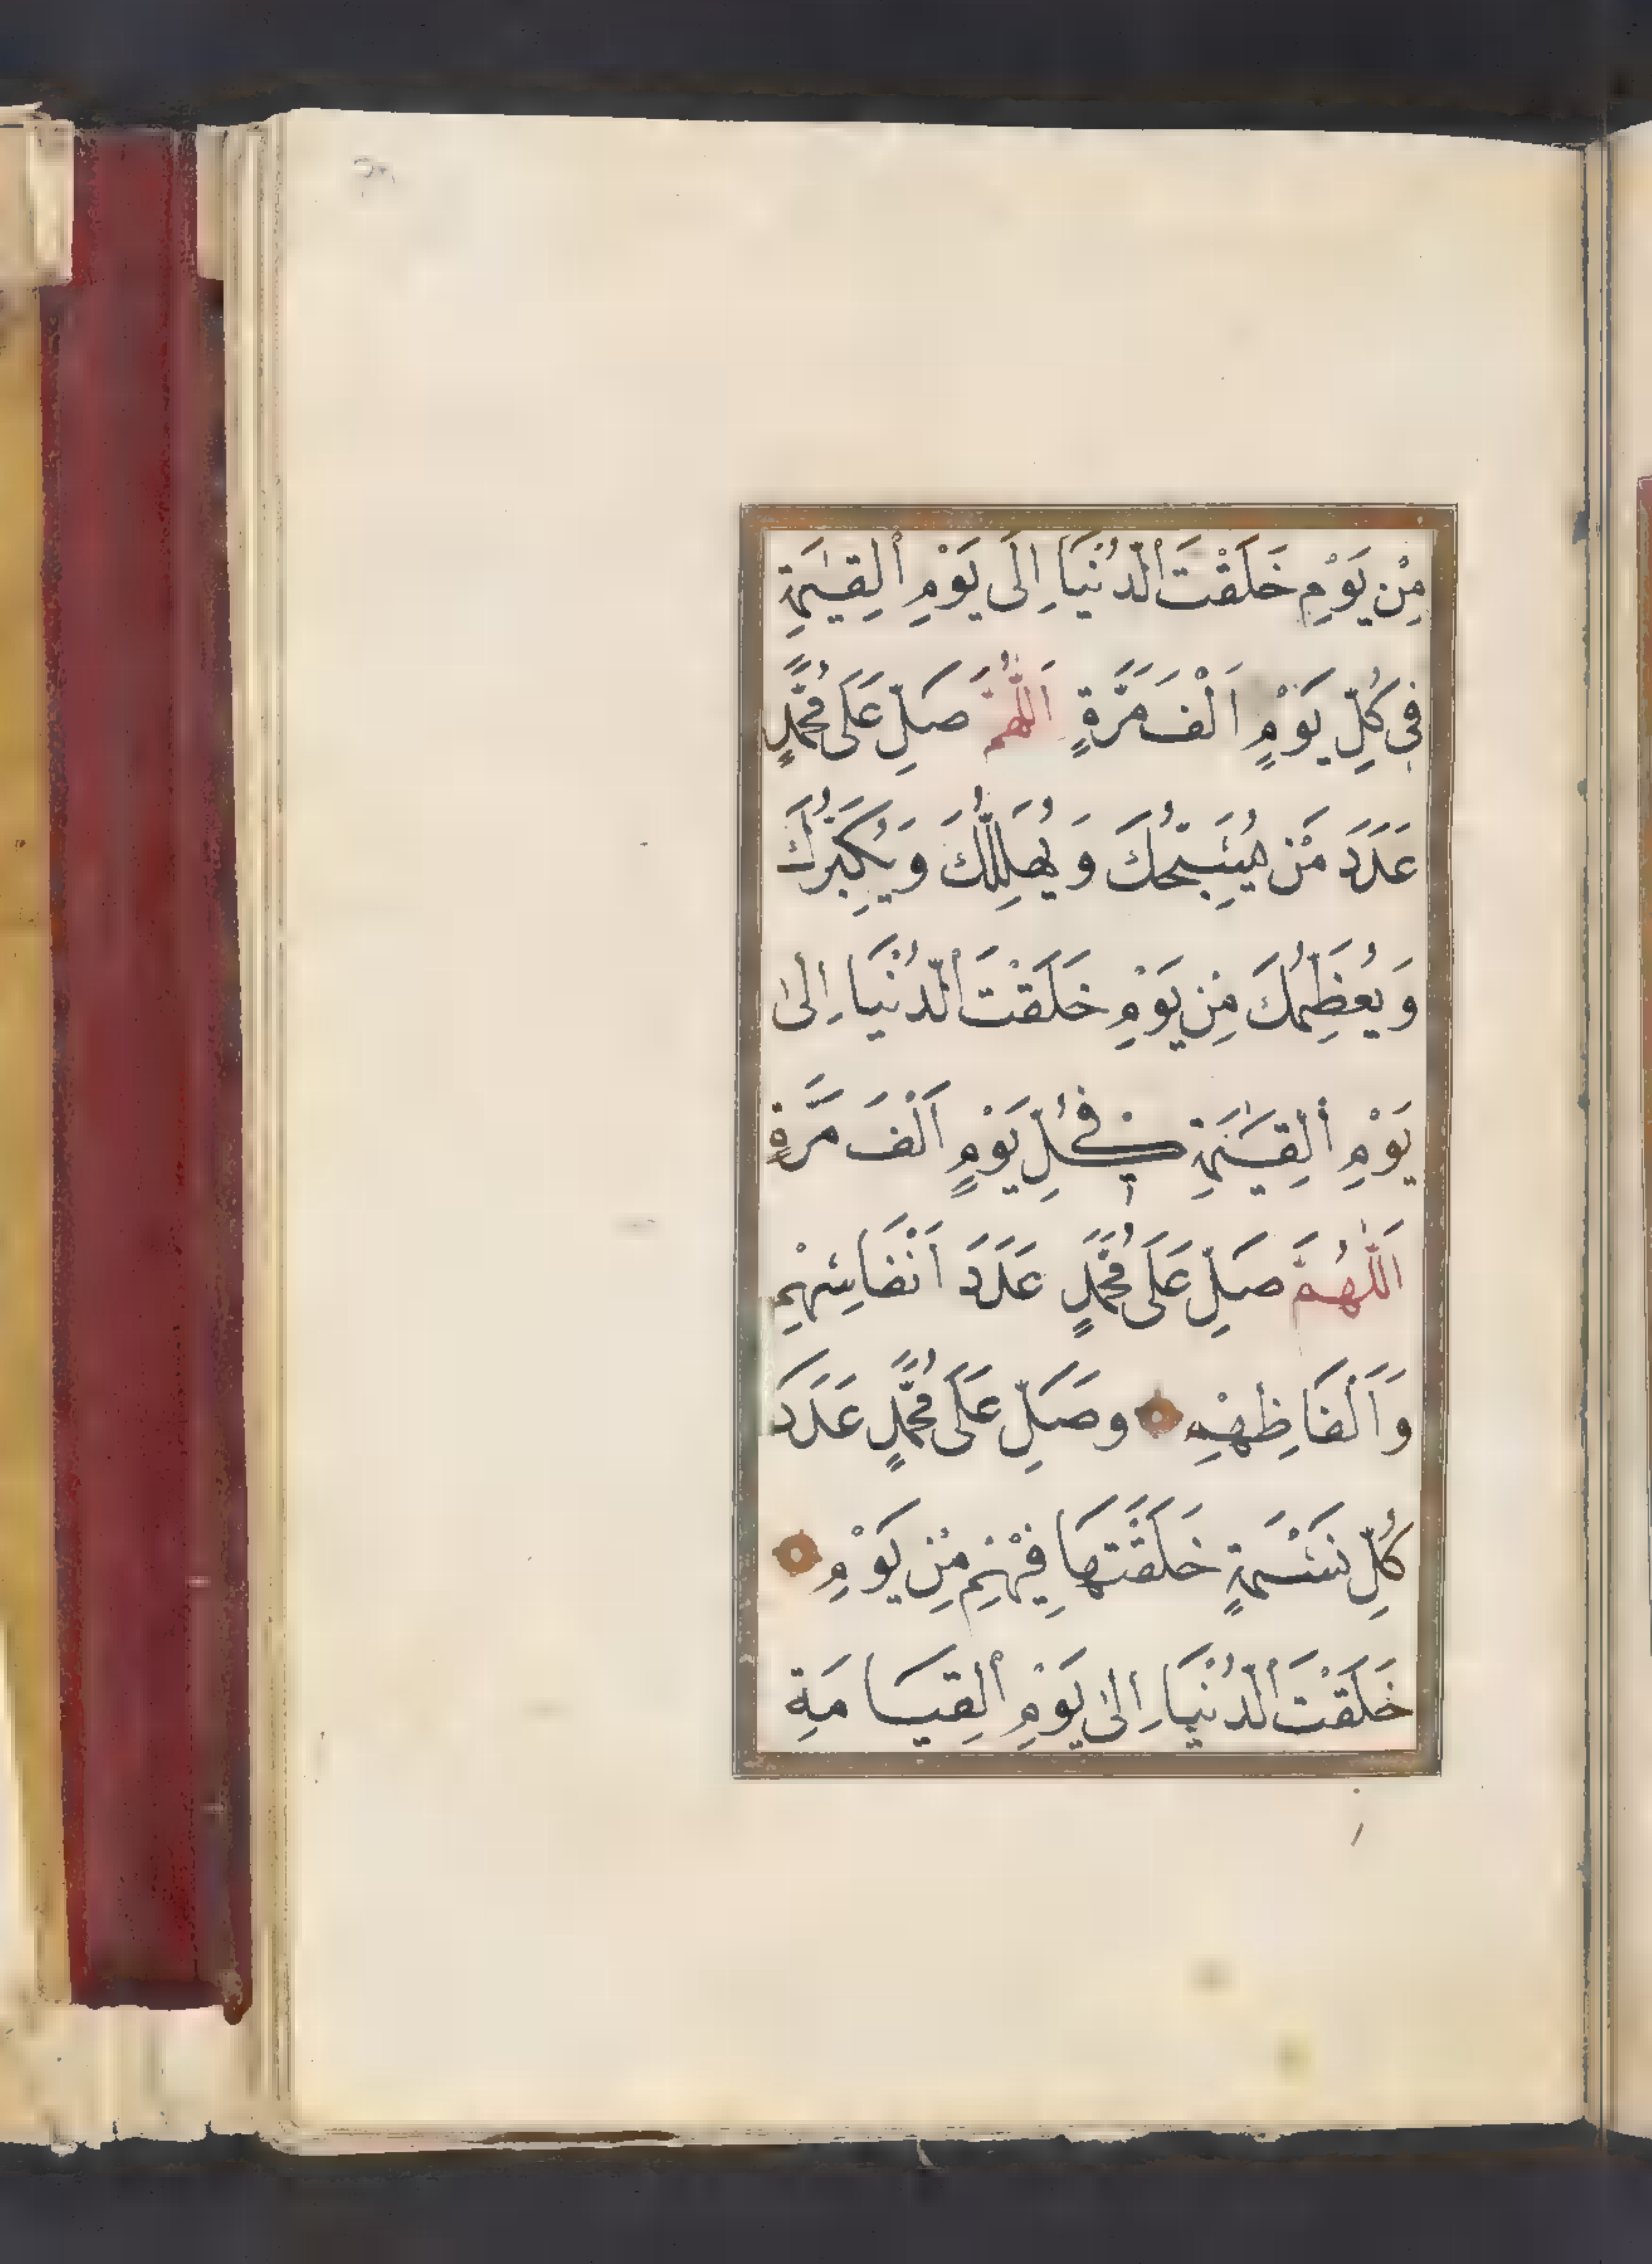 مِنْ يَوْمِ خَلَقْتَ الدُّنْيَا اِلَى يَوْمِ الْقِيٰمَةِ
فِى كُلِّ يَوْمٍ اَلْفَ مَرَّةٍ اَللّٰهُمَّ صَلِّ عَلَى مُحَمَّدٍ
عَدَدَ مَنْ يُسَبِّحُكَ وَيُهَلِّلُكَ وَيُكَبِّرُكَ
وَيُعَظِّمُكَ مِنْ يَوْمِ خَلَقْتَ الدُّنْيَا اِلىٰ
يَوْمِ الْقِيٰمَةِ فِى كُلِّ يَوْمٍ اَلْفَ مَرَّةٍ
اَللّٰهُمَّ صَلِّ عَلَى مُحَمَّدٍ عَدَدَ اَنْفَاسِهِمْ
وَاَلْفَاظِهِمْ وصَلِّ عَلَى مُحَمَّدٍ عَدَدَ
كُلِّ نَسَمَةٍ خَلَقْتَهَا فِيْهِمْ مِنْ يَوْمِ
خَلَقْتَ الدُّنْيَا اِلىٰ يَوْمِ الْقِيَامَةِ